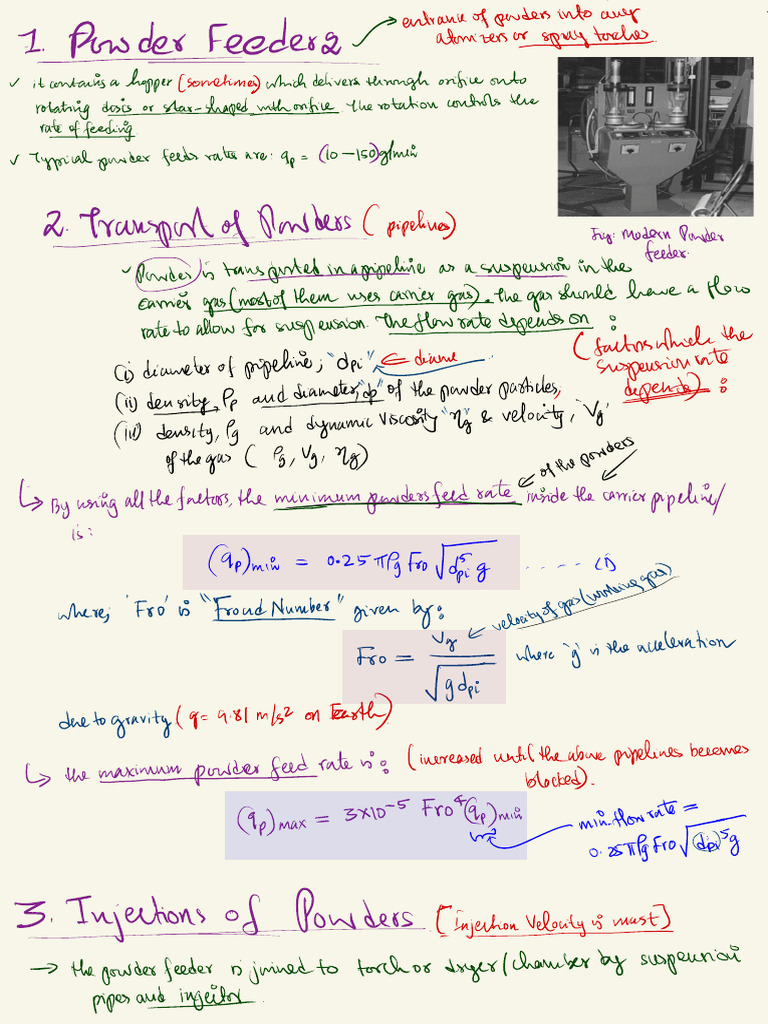 1. Powder Feeder 2
entrance of powders into any
atomizers or spray torches.
✓ it contains a hopper (sometimes) which delivers through orifice onto
rotating dosis or star-shaped with orifice. The rotation controls the
rate of feeding
✓ Typical powder feeds rates are: qp = (10-150)g/min
Fig: Modern Powder
feeder.
2. Transport of Powders (pipelines)
✓ Powder is transported in a pipeline as a suspension in the
carrier gas (most of them uses carrier gas). The gas should have a flow
rate to allow for suspension. The flow rate depends on :
(factors which the
suspension rate
depends) :
(i) diameter of pipeline; "dpi" ⇐ diame
(ii) density, ρp and diameter, "dp" of the powder particles,
(iii) density, ρg and dynamic viscosity "ηg" & velocity, 'Vg'
of the gas ( ρg, Vg, ηg)
↳ By using all the factors, the minimum powders feed rate inside the carrier pipeline/
of the powders
is:
(qp)min = 0.25 πρg Fro √(dpi⁵ g) ----- (1)
where, 'Fro' is "Froud Number" given by:
velocity of gas (working gas)
Fro = Vg / √(g dpi) where 'g' is the acceleration
due to gravity (g = 9.81 m/s² on Earth)
↳ the maximum powder feed rate is: (increased until (the above pipelines becomes
blocked).
(qp)max = 3×10⁻⁵ Fro⁴ (qp)min
min. flow rate =
0.25πρg Fro √((dpi)⁵ g)
3. Injections of Powders [Injection Velocity is must]
→ the powder feeder is joined to torch or dryer/chamber by suspension
pipes and injector.